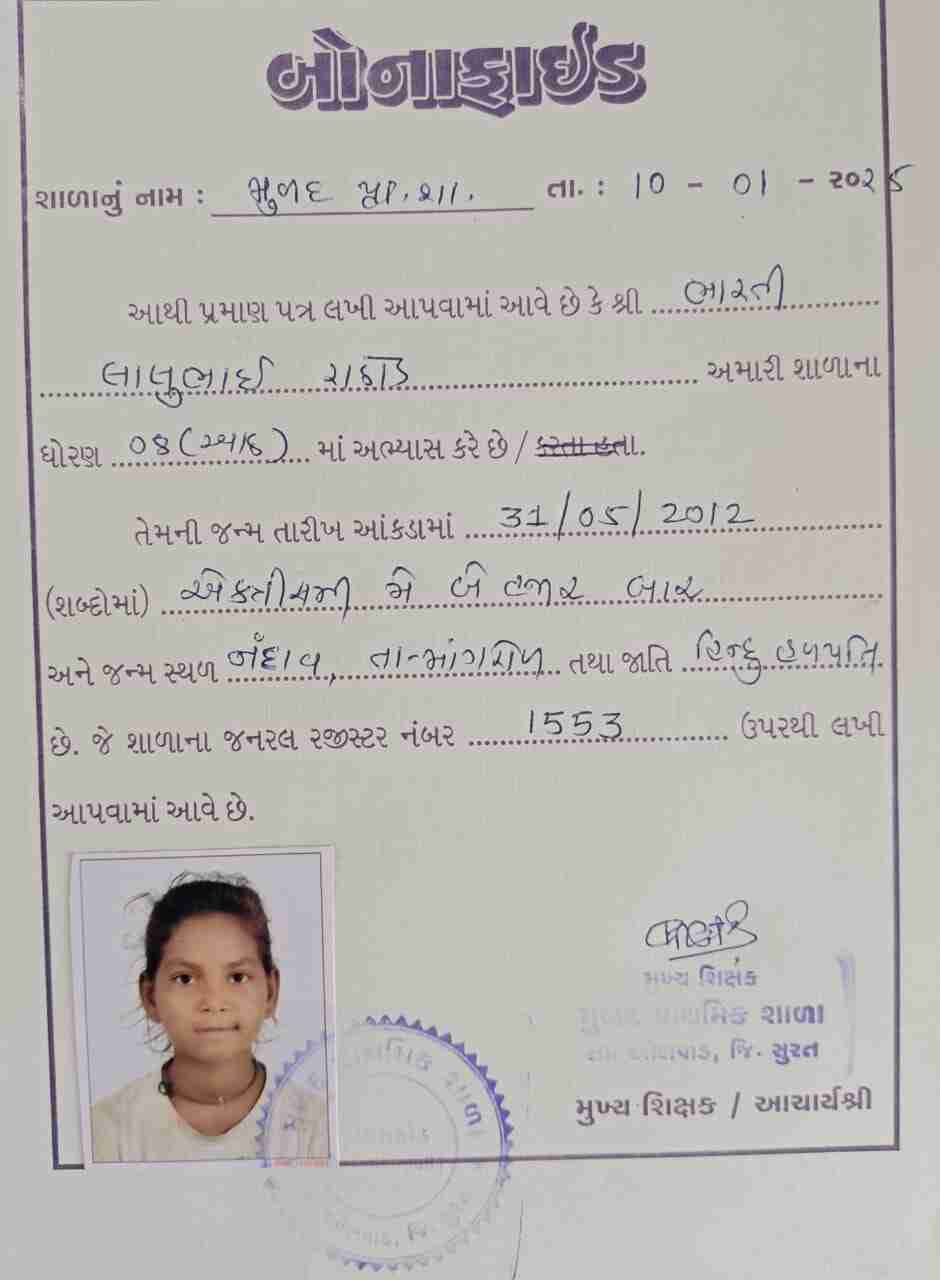 બોનાફાઈડ
શાળાનું નામ : મુળદ પ્રા. શા. તા. : 10 - 01 - ૨૦૨૫
આથી પ્રમાણ પત્ર લખી આપવામાં આવે છે કે શ્રી ભારતી
લાલુભાઈ રાઠોડ અમારી શાળાના
ધોરણ ૦૪ (ચાર) માં અભ્યાસ કરે છે / કરતા હતા.
તેમની જન્મ તારીખ આંકડામાં 31/05/2012
(શબ્દોમાં) એકત્રીસમી મે બે હજાર બાર
અને જન્મ સ્થળ નંદાવ, તા-માંગરોળ તથા જાતિ હિન્દુ હળપતિ
છે. જે શાળાના જનરલ રજીસ્ટર નંબર 1553 ઉપરથી લખી
આપવામાં આવે છે.
મુખ્ય શિક્ષક
મુળદ પ્રાથમિક શાળા
તા. ઓલપાડ, જિ. સુરત
મુખ્ય શિક્ષક / આચાર્યશ્રી
પ્રાથમિક શાળા